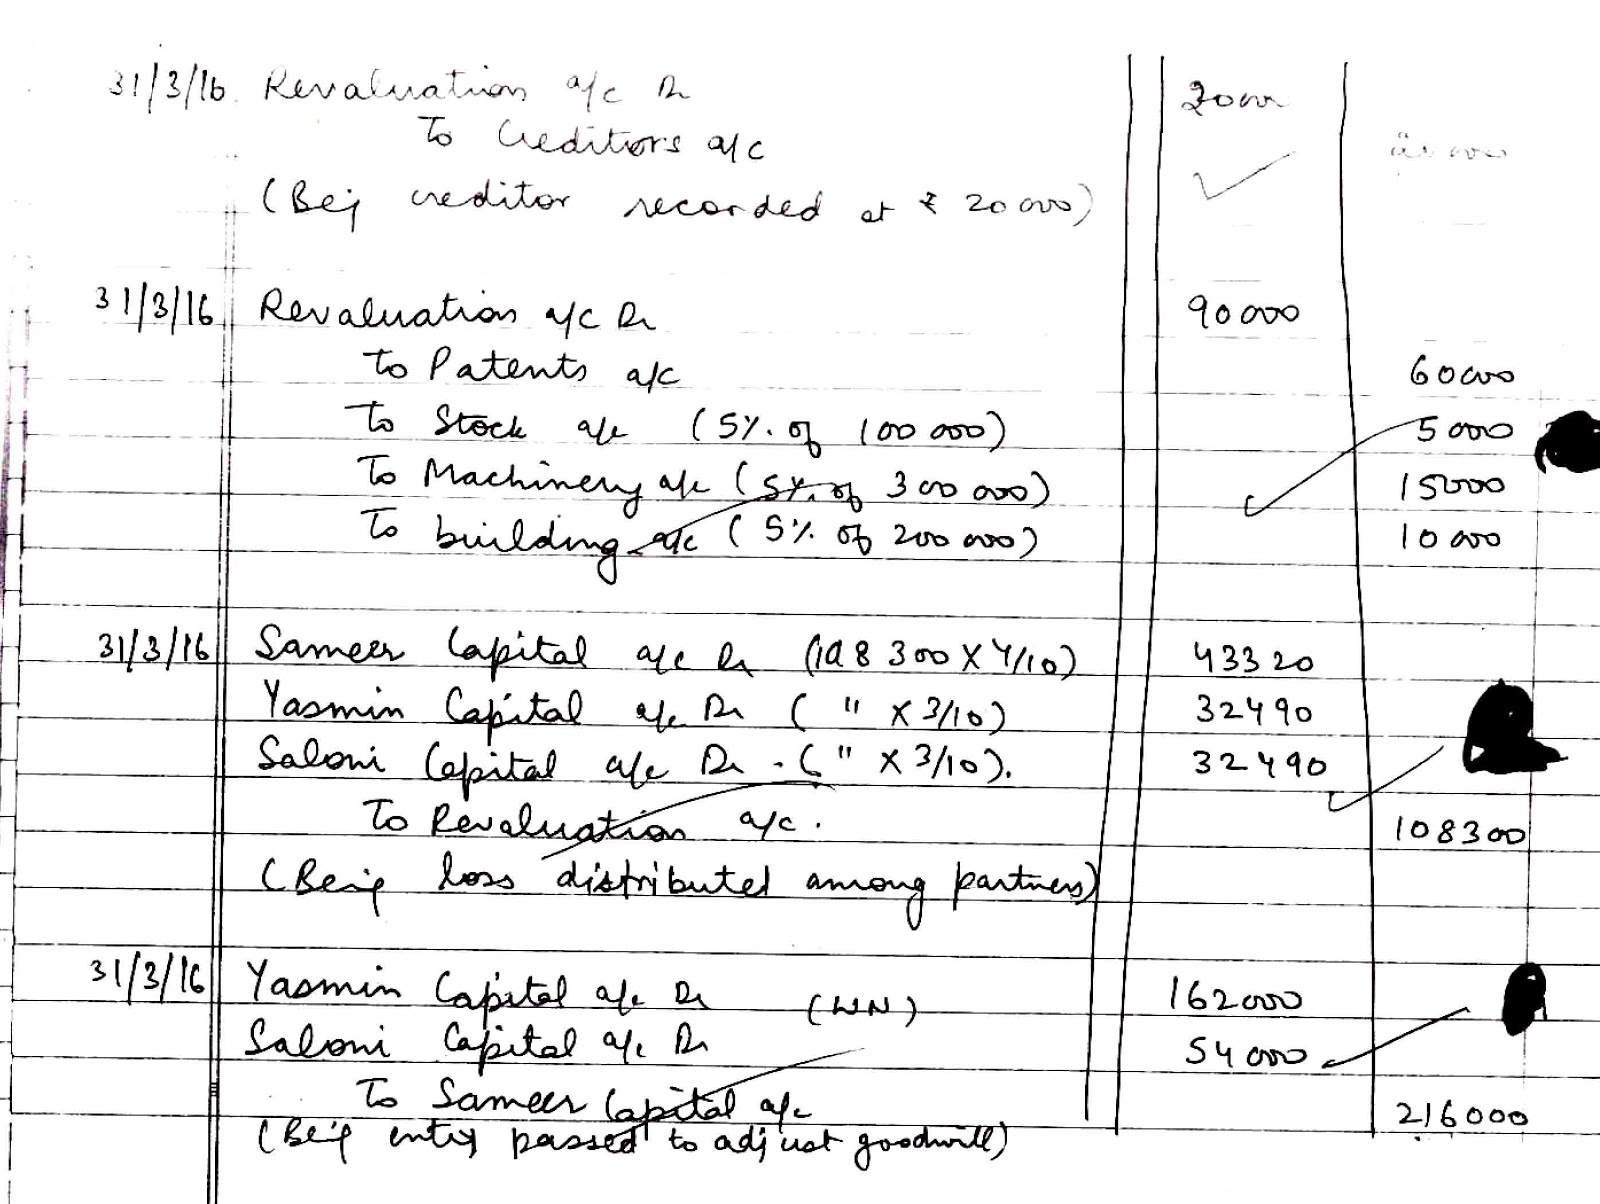 31/3/16 Revaluation a/c Dr 20000
To Creditors a/c
(Beig creditor recorded at ₹ 20000)
31/3/16 Revaluation a/c Dr 90000
To Patents a/c 60000
To Stock a/c (5% of 100000) 5000
To Machinery a/c (5% of 300000) 15000
To building a/c (5% of 200000) 10000
31/3/16 Sameer Capital a/c Dr (108300 X 4/10) 43320
Yasmin Capital a/c Dr ( " X 3/10) 32490
Saloni Capital a/c Dr - ( " X 3/10). 32490
To Revaluation a/c. 108300
(Being loss distributed among partners)
31/3/16 Yasmin Capital a/c Dr (WN) 162000
Saloni Capital a/c Dr 54000
To Sameer Capital a/c 216000
(Beig entry passed to adjust goodwill)